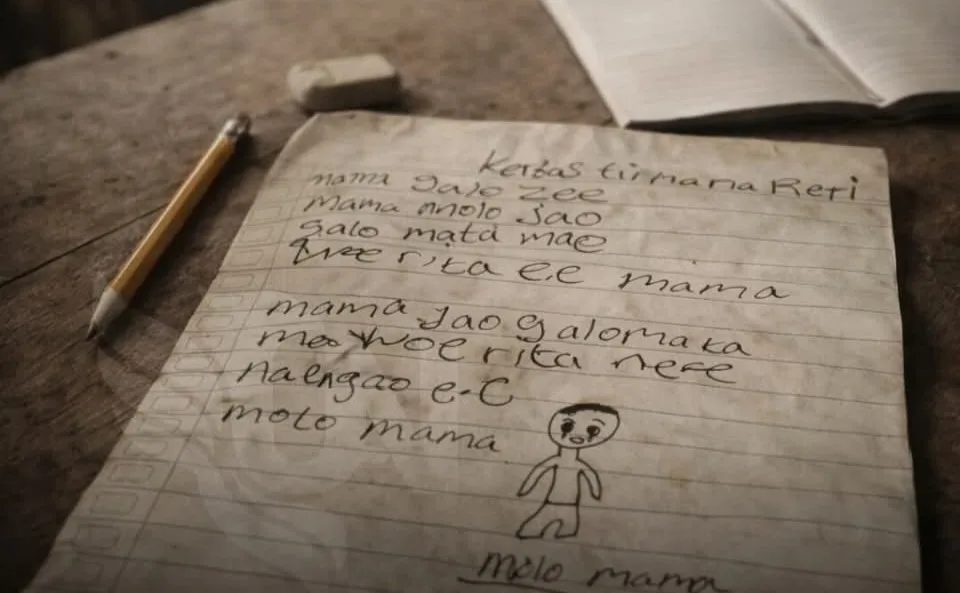 Kertas tii mama Reti
mama galo zee
mama molo jao
galo mata mae
rita ee mama
mama jao galo maka
woe rita nee
naengao e-e
molo mama
molo mama